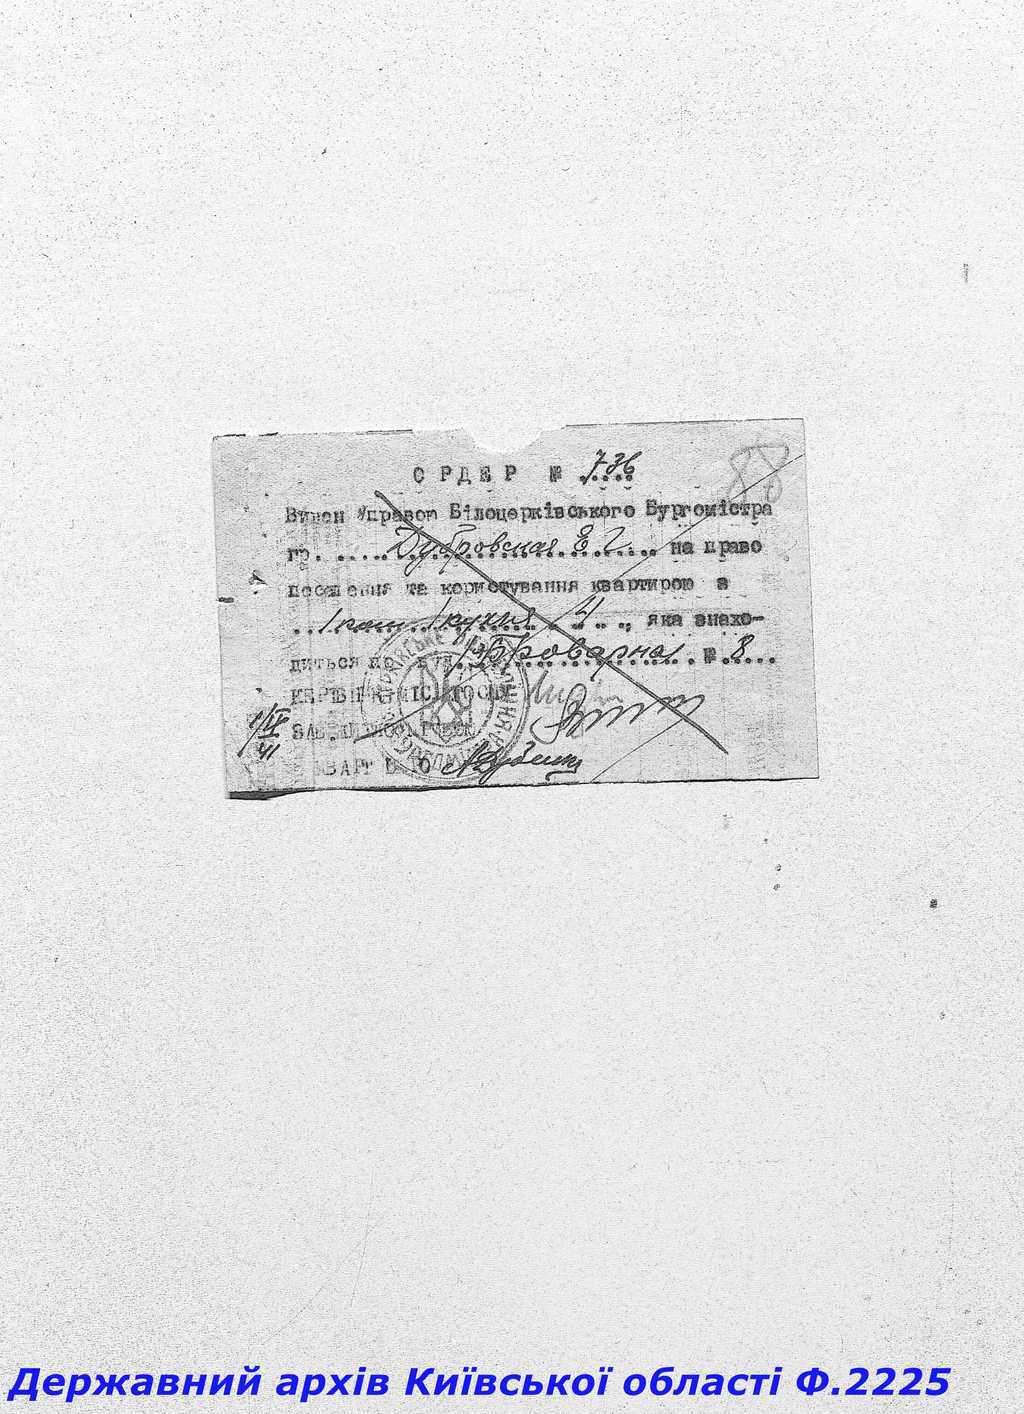 ОРДЕР № 736
88
Видан Управою Білоцерківського Бургомістра
гр. Дубровская Э Г. на право
поселення та користування квартирою в
1 ком 1 кухня 4, яка знахо-
диться по вул. Броварна № 8
КЕРІВНИК МІСЬ ГОСП
ЗАВ. ЖИТЛОВ
1/IX
41
КВАРТ БЮРО
Державний архів Київської області Ф.2225